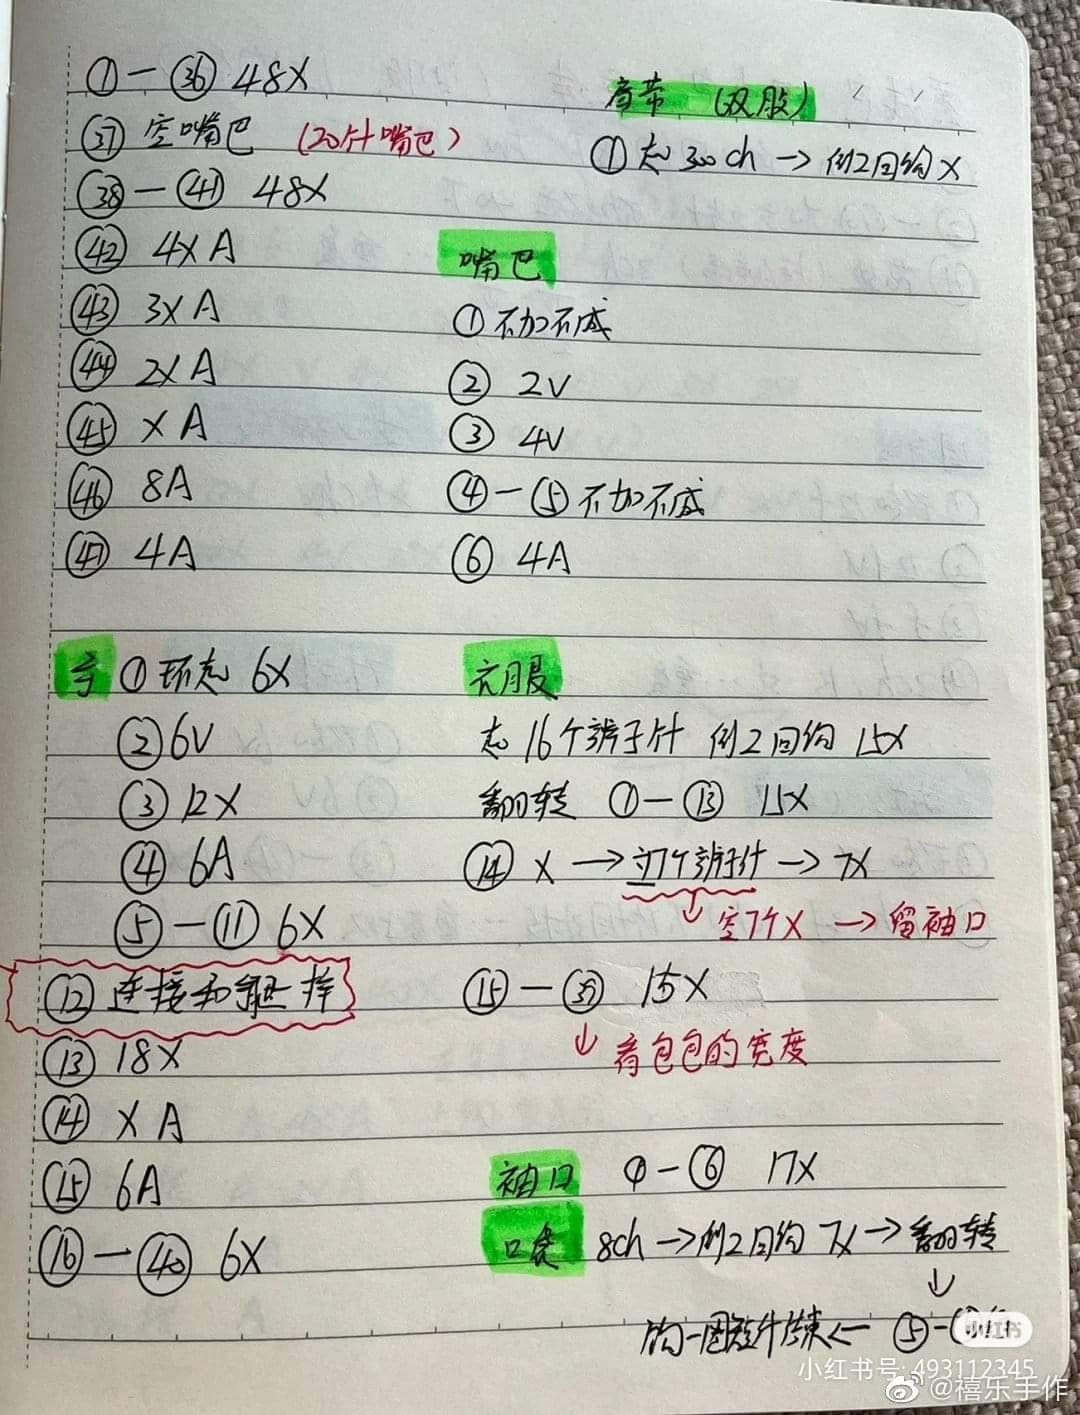 ①—㊱ 48X
㊲ 空嘴巴 (20针嘴巴)
㊳—㊶ 48X
㊷ 4X A
㊸ 3X A
㊹ 2X A
㊺ X A
㊻ 8A
㊼ 4A
肩带 (双股)
① 起300ch → 倒2回钩X
嘴巴
① 不加不减
② 2V
③ 4V
④—⑤ 不加不减
⑥ 4A
① 环起 6X
② 6V
③ 12X
④ 6A
⑤—⑪ 6X
⑫ 连接和
⑬ 18X
⑭ X A
⑮ 6A
⑯—㊵ 6X
衣服
起16个辫子针 倒2回钩 15X
翻转 ①—⑬ 15X
⑭ X → 7个辫子针 → 7X
↓ 空7个X → 留袖口
⑮—㊴ 15X
↓ 看包包的宽度
袖口 ①—⑥ 17X
口袋 8ch → 倒2回钩 7X → 翻转
↓
钩一圈短针结束 ← ⑤—
小红书
小红书号: 493112345
@禧乐手作